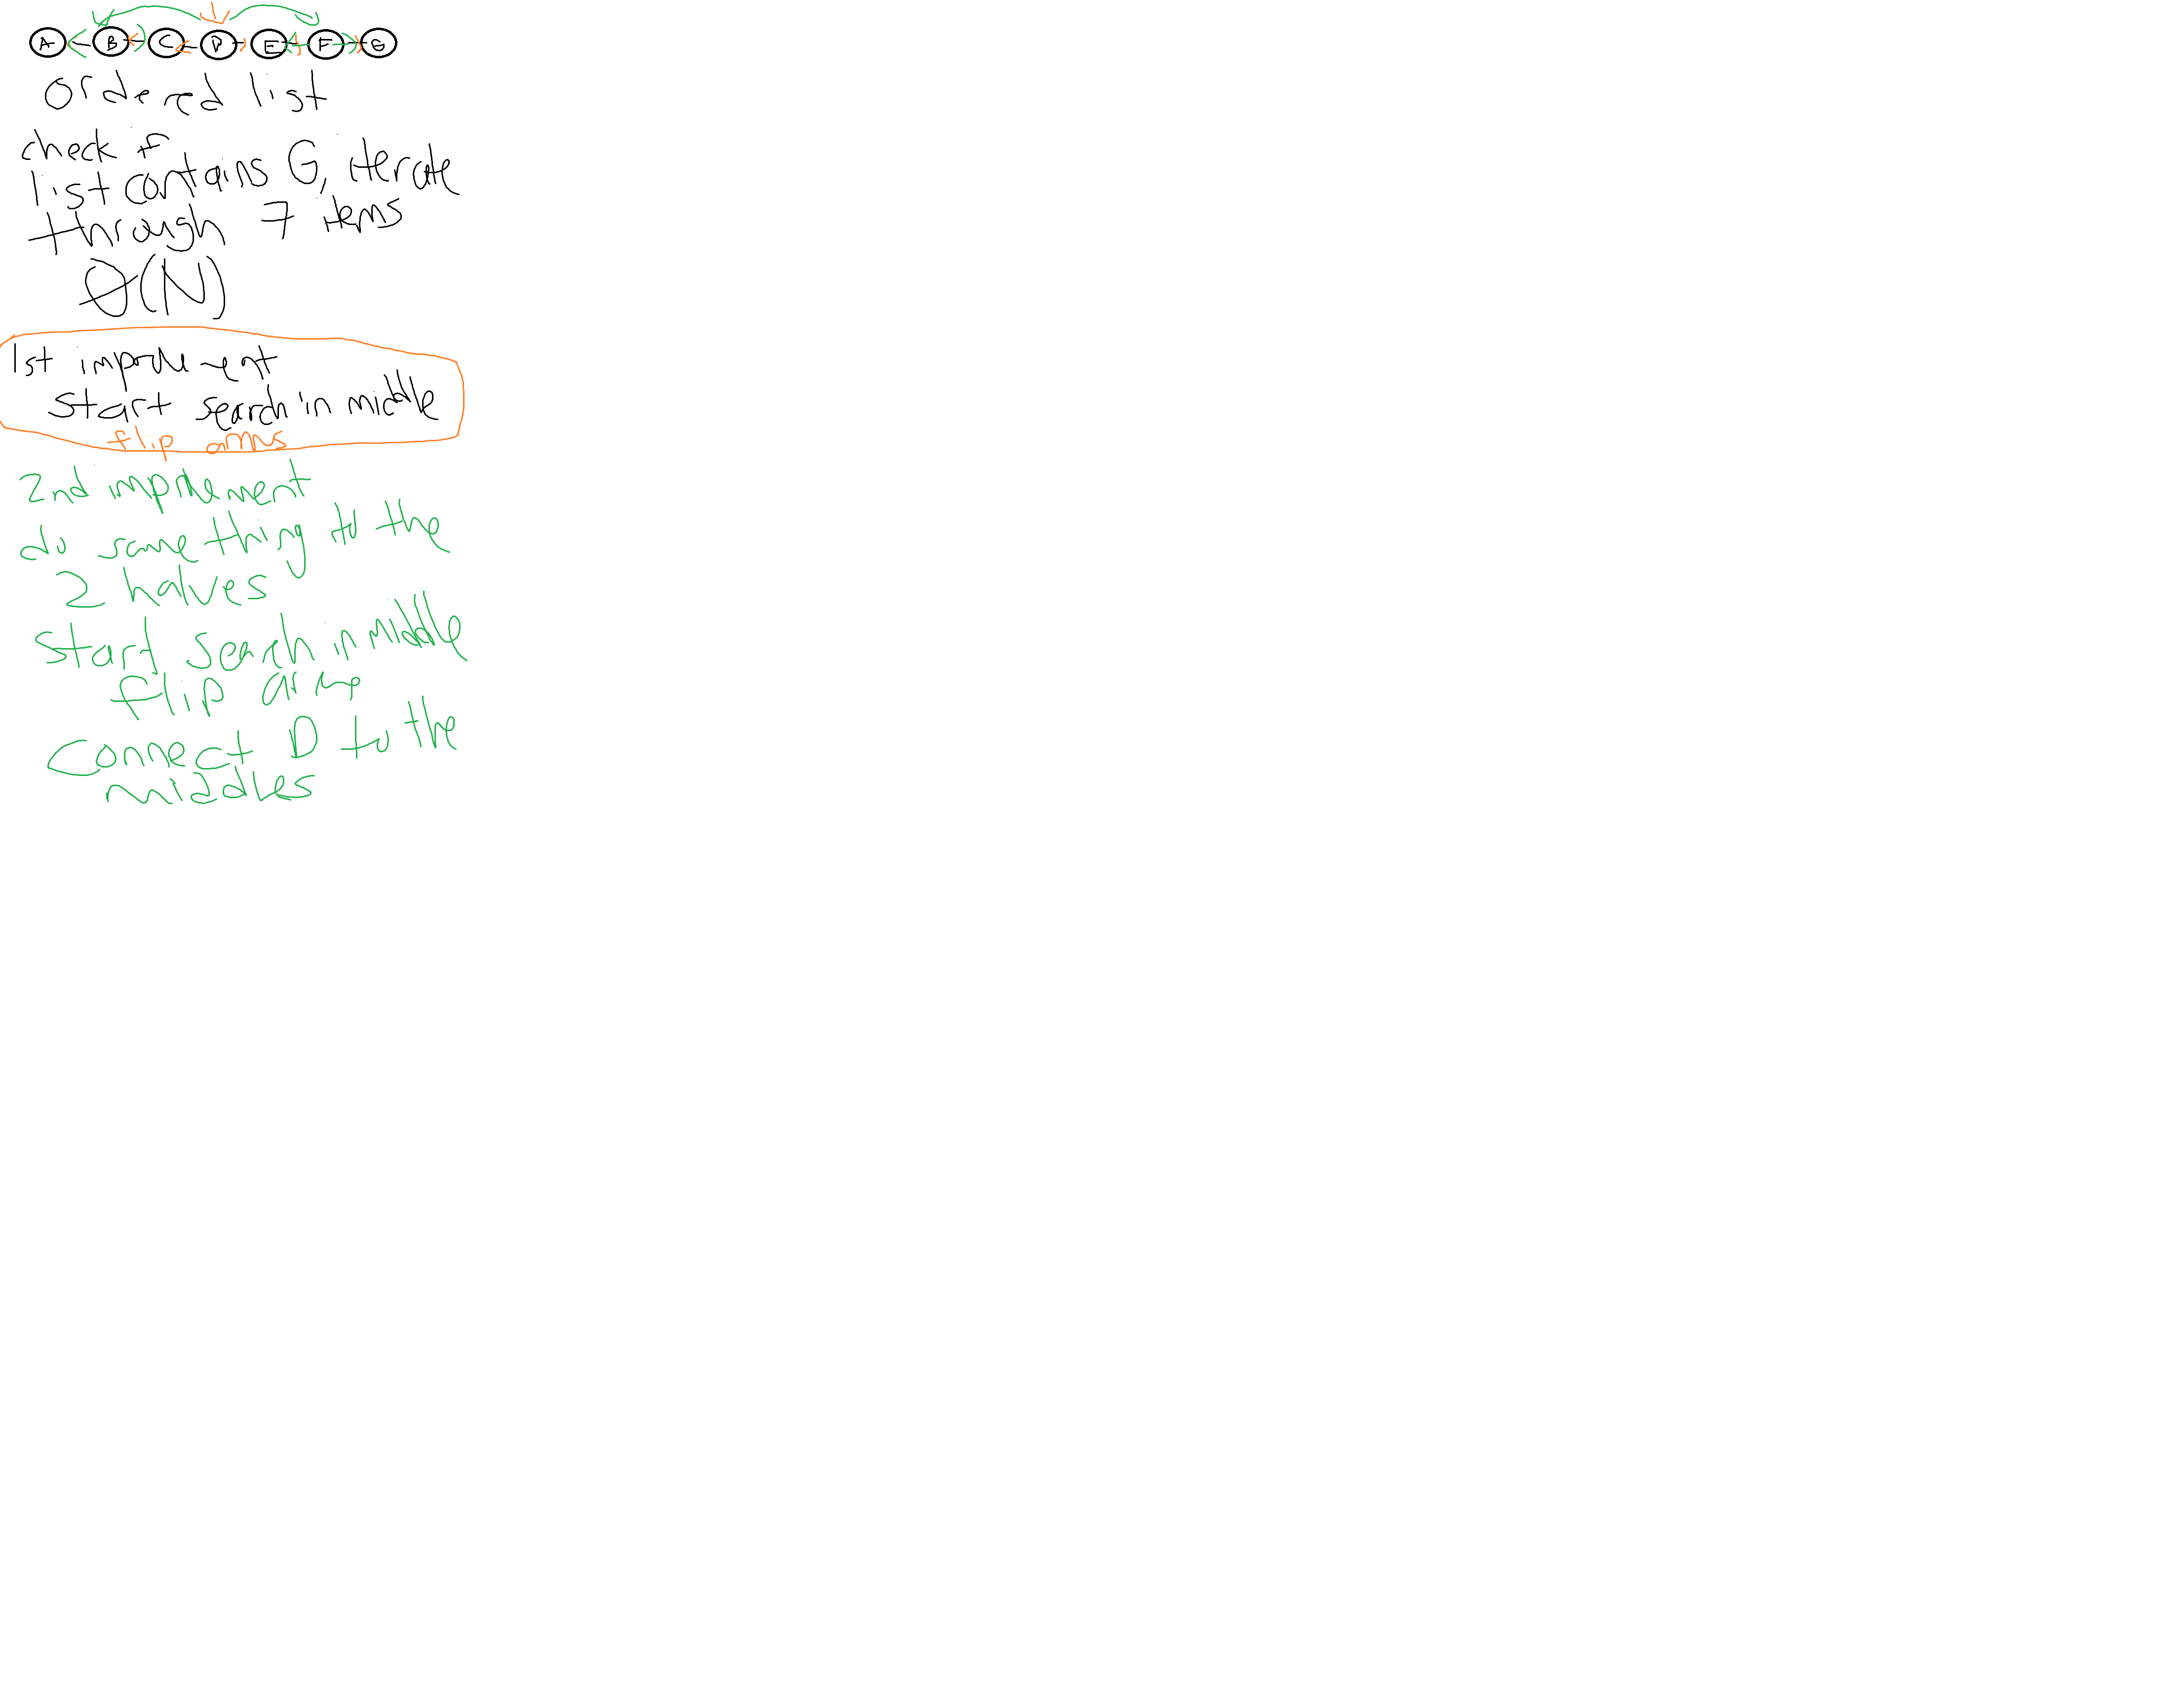 A B C D E F G
ordered list
check if
list contains G, iterate
through 7 items
θ(N)
1st improvement
start search in middle
flip arms
2nd implement
do same thing to the
2 halves
start search in middle
flip arms
connect D to the
middles